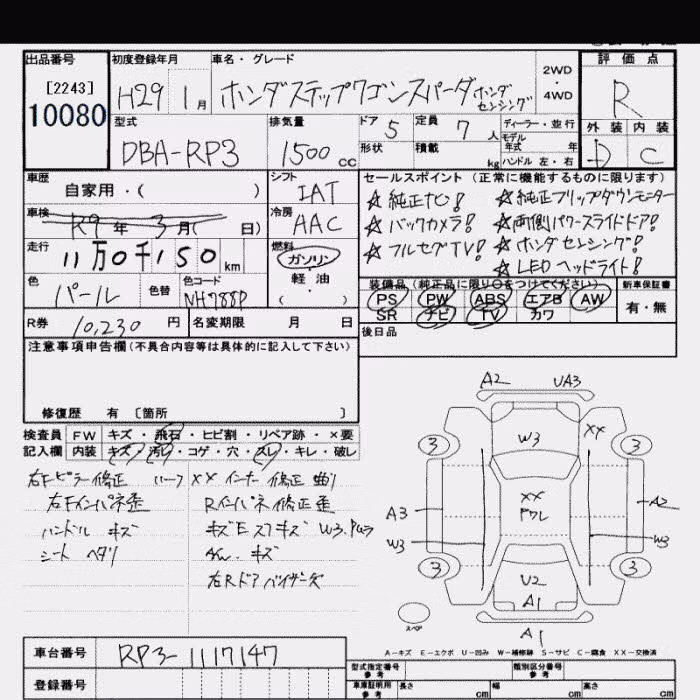 出品番号 初度登録年月 車名・グレード 評価点
[2243]
10080
H29 1月 ホンダステップワゴンスパーダ ホンダセンシング 2WD・4WD R
型式 排気量 ドア 定員 ディーラー・並行 外装 内装
DBA-RP3 1500cc 5 7人 モデル年式 年 D C
形状 積載 kg ハンドル 左・右
車歴 シフト セールスポイント (正常に機能するものに限ります)
自家用・( ) IAT
☆純正ナビ! ☆純正フリップダウンモニター
車検 R9年 3月( 日) 冷房 AAC
☆バックカメラ! ☆両側パワースライドドア!
走行 11万0千150km 燃料 ガソリン・軽油・( )
☆フルセグTV! ☆ホンダセンシング!
☆LEDヘッドライト!
色 パール 色替 色コード NH788P
装備品 (純正品に限り○をつけてください) 新車保証書
PS PW ABS エアB AW 有・無
SR ナビ TV カワ
R券 10,230円 名変期限 月 日
後日品
注意事項申告欄(不具合内容等は具体的に記入して下さい)
修復歴 有 [箇所 ]
検査員 FW キズ・飛石・ヒビ割・リペア跡・×要
記入欄 内装 キズ・汚れ・コゲ・穴・スレ・キレ・破レ
右Fピラー修正 ルーフXX インナー修正 曲り
右Fインパネ歪 Rインパネ修正歪
ハンドル キズ キズEスプキズ W3.PWラ
シート ヘタリ AW キズ
右Rドアバイザーキズ
A2 UA3
3 W3 XX 3
A3 XX ドワレ A2
W3 W3
3 U2 3
A1
スペア A1
A-キズ E-エクボ U-凹み W-補修跡 S-サビ C-腐食 XX-交換済
車台番号 RP3-1117147
型式指定番号 参考 類別区分番号 参考
登録番号
車庫証明用 参考 長さ cm 幅 cm 高さ cm